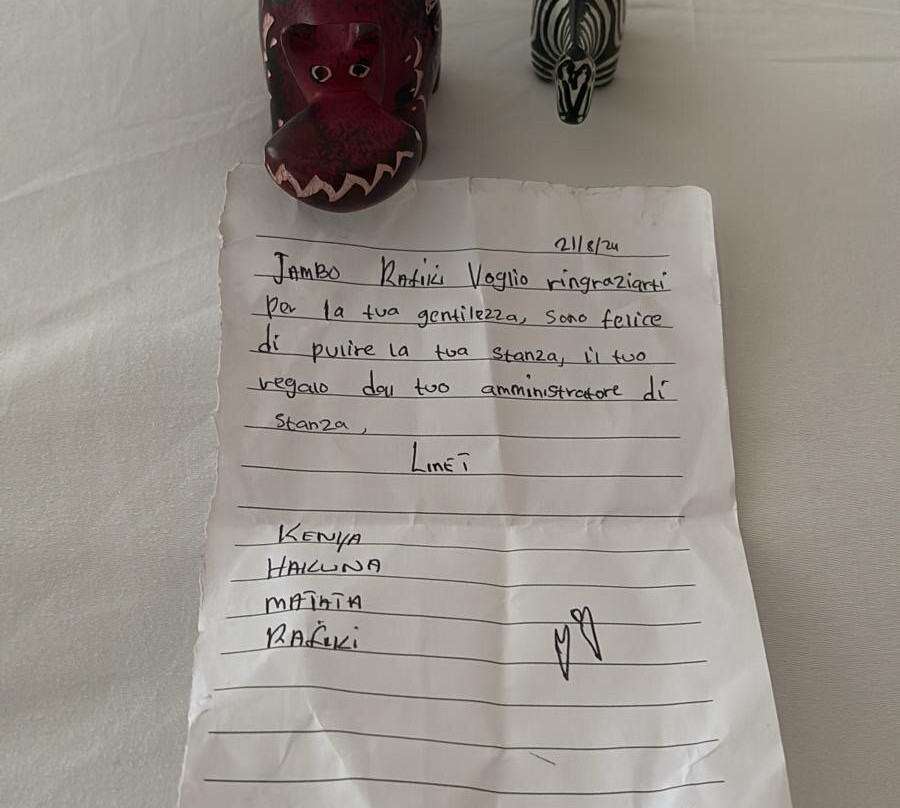 21/8/24
JAMBO Rafiki Voglio ringraziarti
per la tua gentilezza, sono felice
di pulire la tua stanza, il tuo
regalo dal tuo amministratore di
stanza,
LINET
KENYA
HAKUNA
MATATA
RAfiki